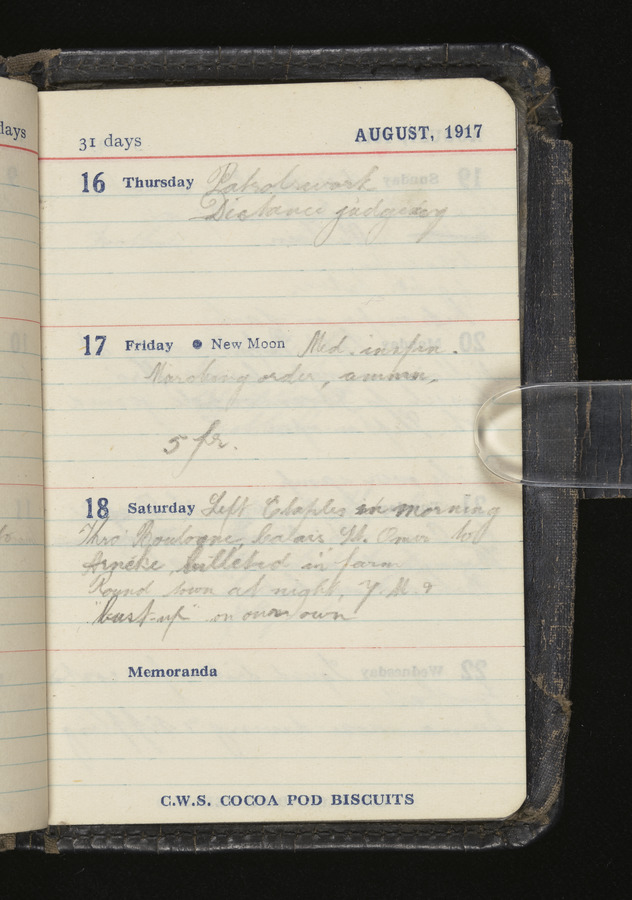 days
31 days AUGUST, 1917
16 Thursday Patrol work
Distance judging
17 Friday New Moon Med. inspn.
Marching order, ammn.
5 fr.
18 Saturday Left Etaples in morning
Thro' Boulogne, Calais, St. Omer to
Arneke, billeted in farm
Round town at night, Y.M. &
"bust-up" on our own
Memoranda
C.W.S. COCOA POD BISCUITS